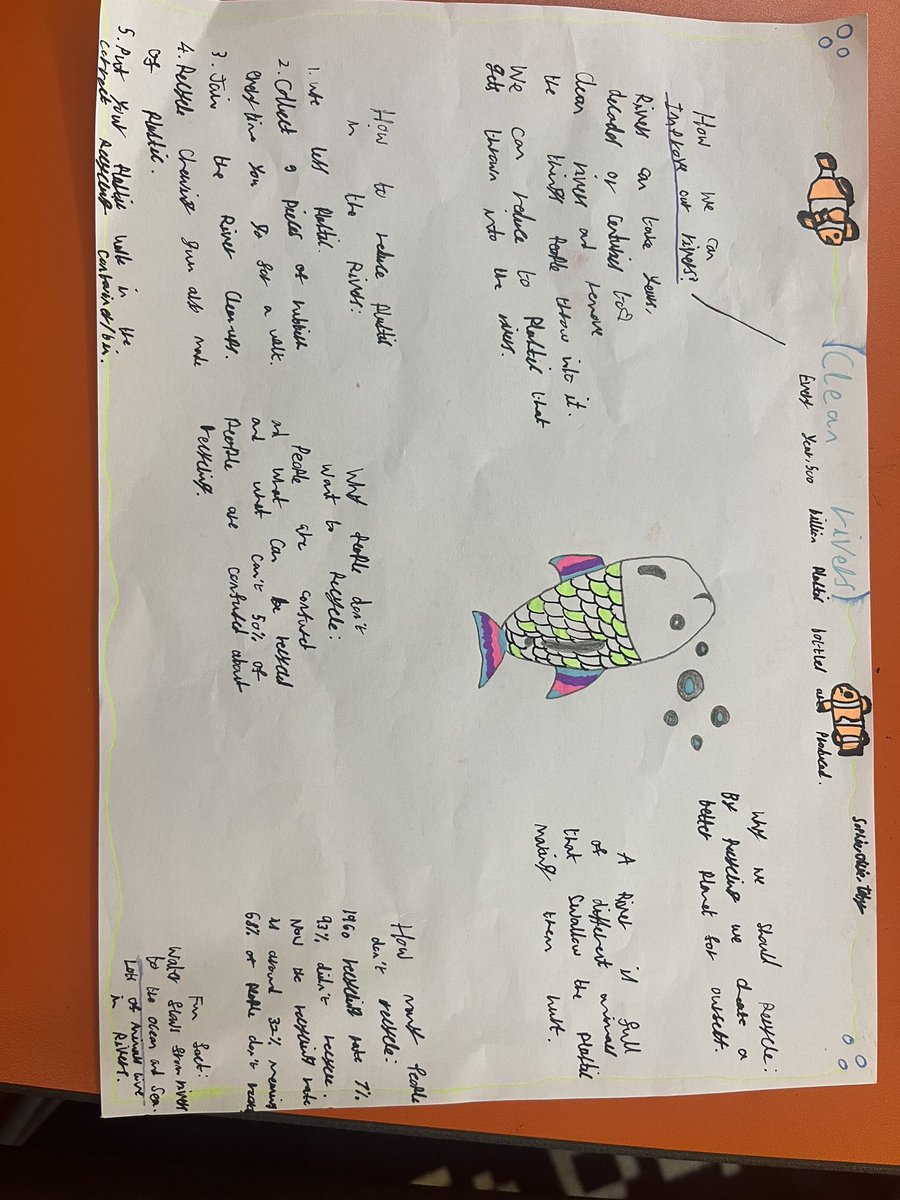 (Clean rivers)
Every year, 500 billion Plastic bottles are Produced.
How we can
Improve our rivers?
Rivers can take years,
decades or centuries too
Clean rivers and remove
the things People throw into it.
We can reduce to Plastic that
gets thrown into the rivers.
Why we should recycle:
By Recycling we create a
better Planet for ourself.
A River is full
of different animals
that Swallow the Plastic
making them hurt.
How to reduce Plastic
in the Rivers:
1. use less Plastic.
2. Collect 9 Pieces of rubbish
every time you go for a walk.
3. Join the River Clean-ups.
4. Recycle Chewing gum also made
of Plastic.
5. Put your Plastic waste in the
correct Recycling container/bin.
Why People don't
want to recycle:
People are confused
at what can be recycled
and what can't 50% of
People are confused about
recycling.
How many People
don't recycle:
1960 recycling rate 7%
93% didn't recycle.
Now the recycling rate
is around 32% meaning
68% of People don't
Fun fact:
Water flows from rivers
to the ocean and sea.
Lots of Animals live
in Rivers.